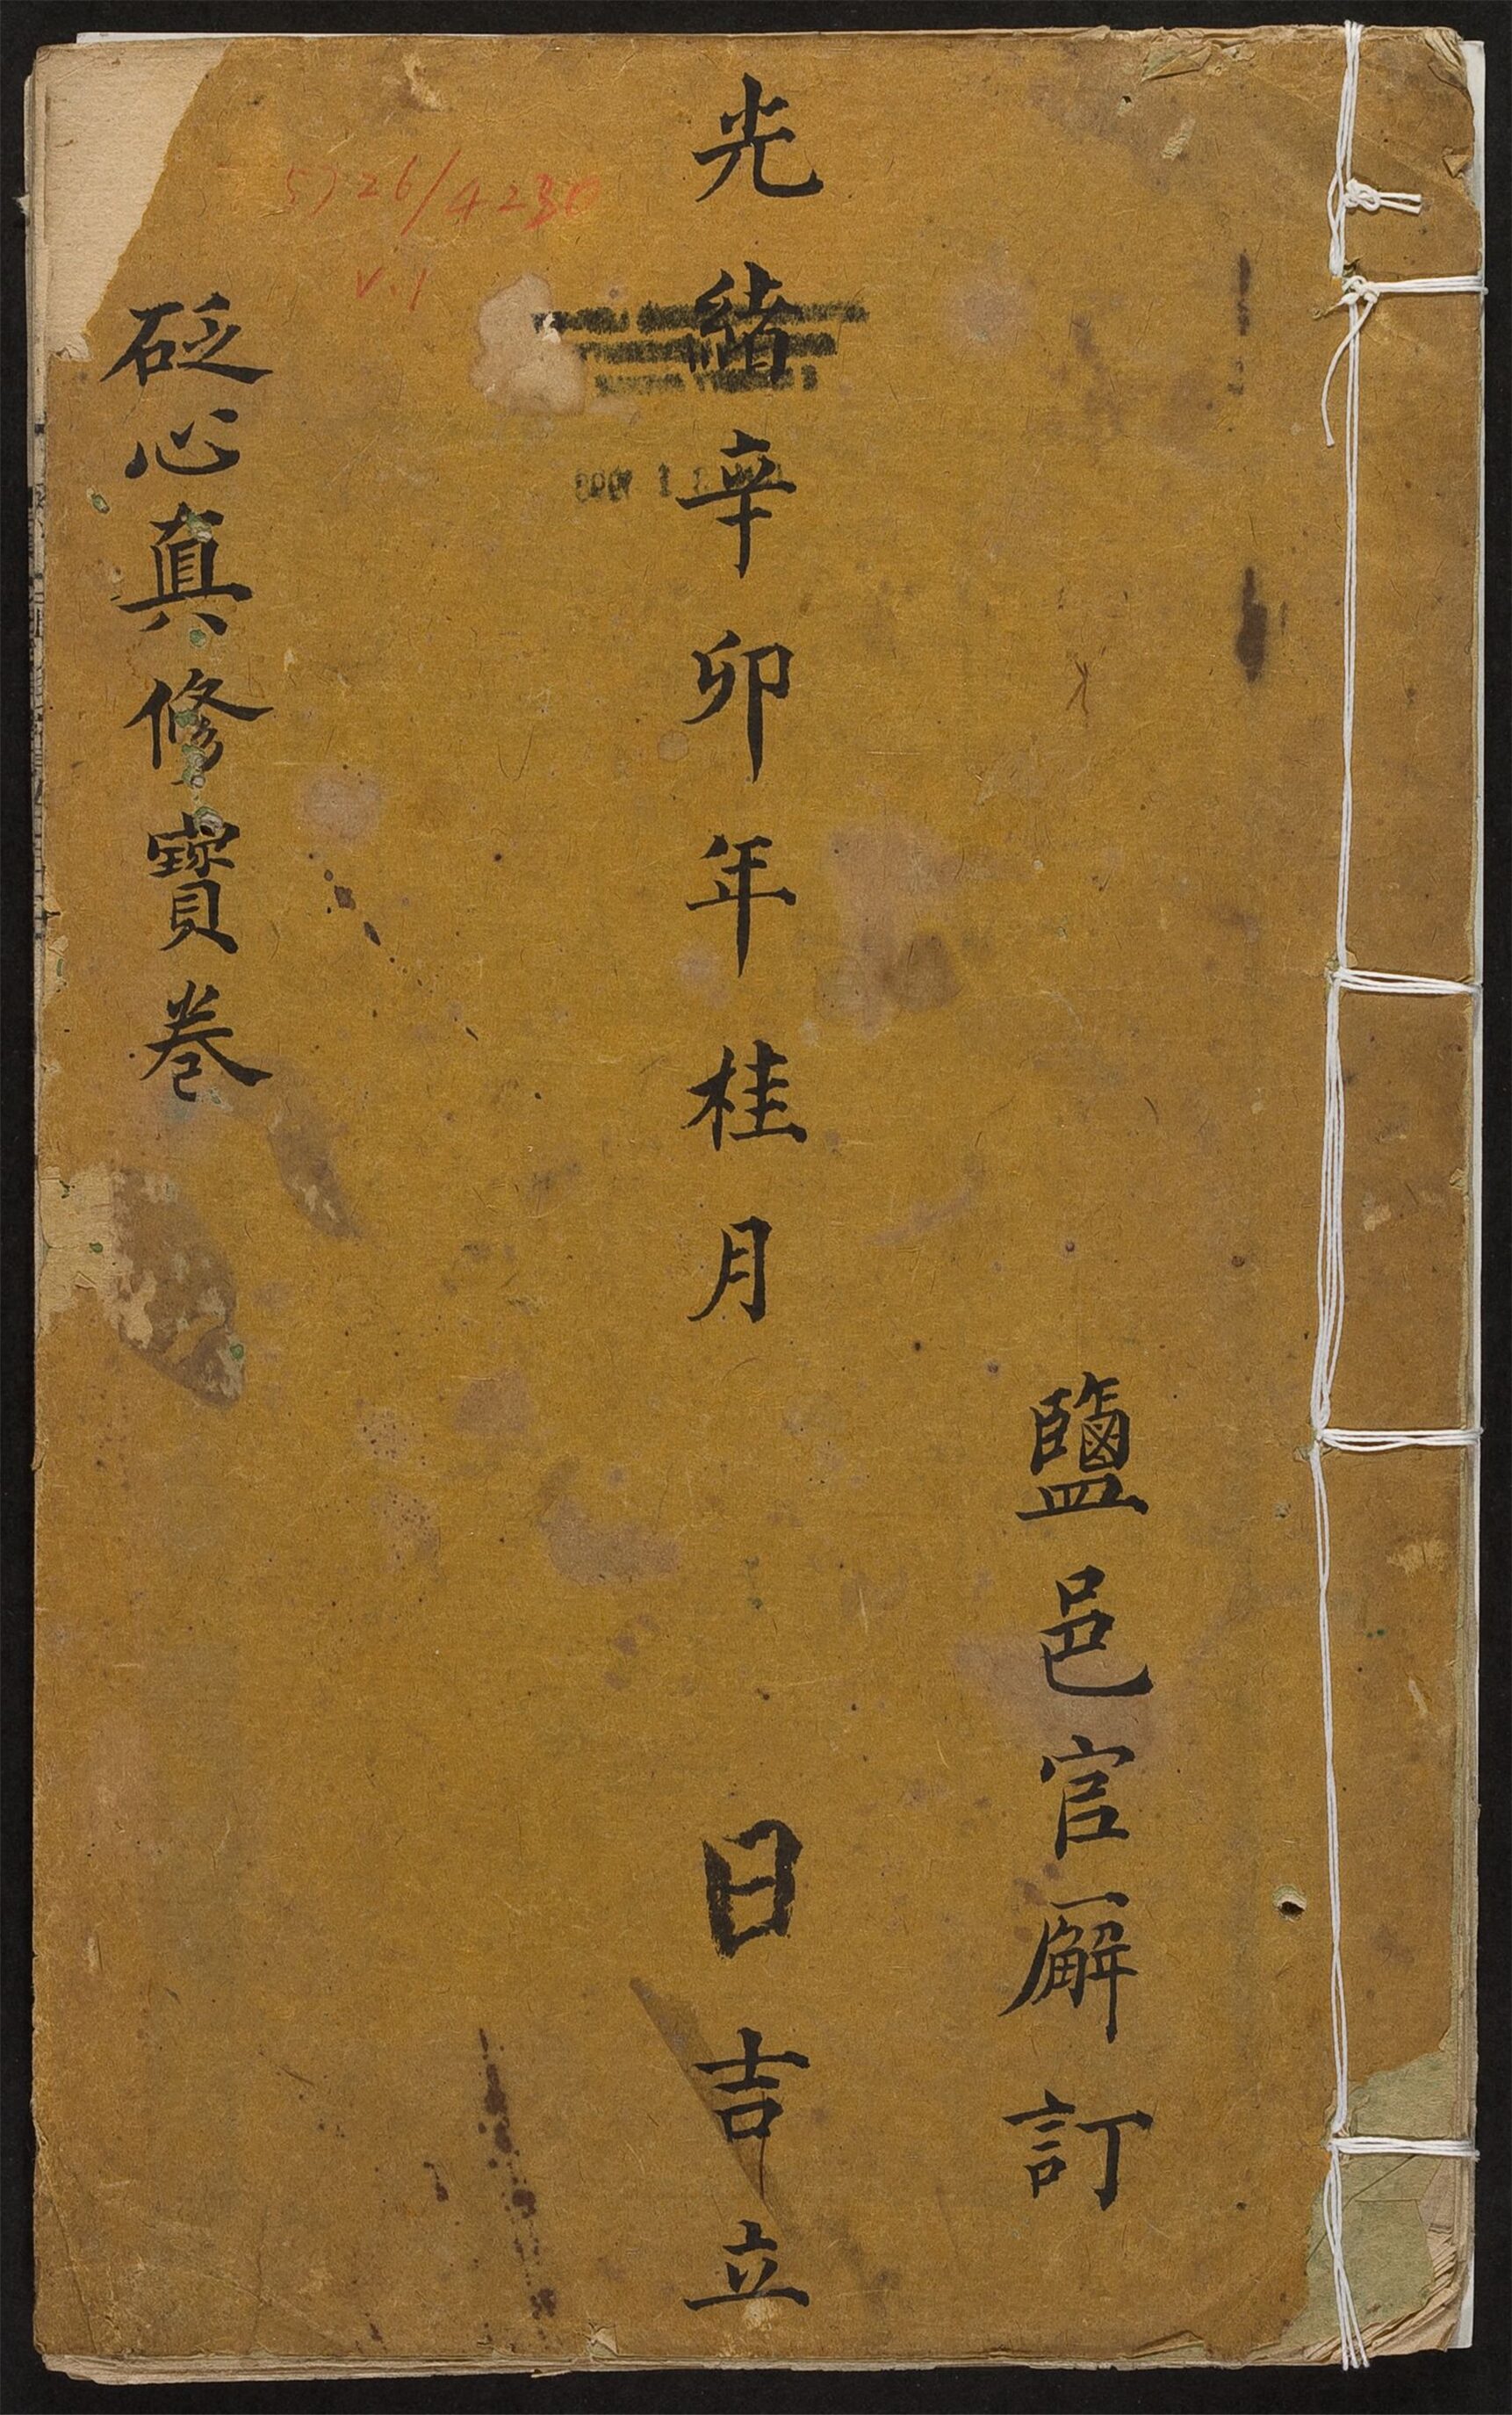 鹽邑官廨訂
光緒辛卯年桂月 日吉立
砭心真修寳卷
5726/4230
v.1